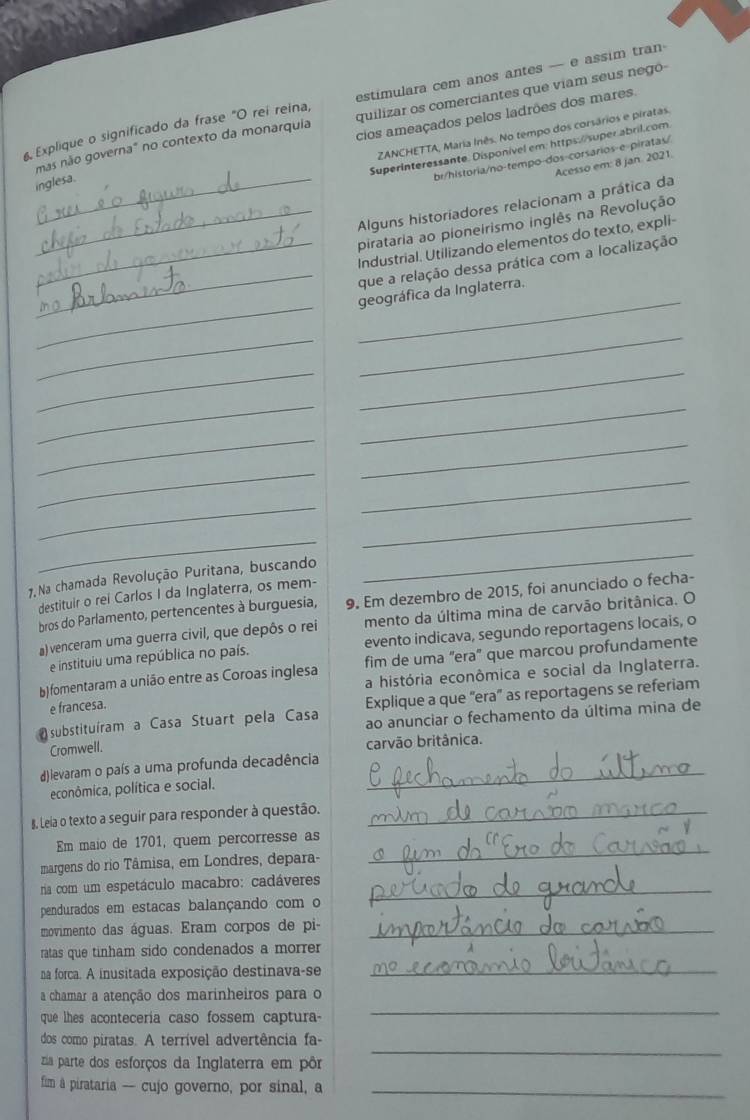 6. Explique o significado da frase "O rei reina,
mas não governa" no contexto da monarquia
inglesa.
O rei é o figura de
chefe do Estado, mas o
poder de governar está
no Parlamento.
7. Na chamada Revolução Puritana, buscando
destituir o rei Carlos I da Inglaterra, os mem-
bros do Parlamento, pertencentes à burguesia,
a) venceram uma guerra civil, que depôs o rei
e instituiu uma república no país.
b) fomentaram a união entre as Coroas inglesa
e francesa.
substituíram a Casa Stuart pela Casa
Cromwell.
d) levaram o país a uma profunda decadência
econômica, política e social.
8. Leia o texto a seguir para responder à questão.
Em maio de 1701, quem percorresse as
margens do rio Tâmisa, em Londres, depara-
ria com um espetáculo macabro: cadáveres
pendurados em estacas balançando com o
movimento das águas. Eram corpos de pi-
ratas que tinham sido condenados a morrer
na forca. A inusitada exposição destinava-se
a chamar a atenção dos marinheiros para o
que lhes aconteceria caso fossem captura-
dos como piratas. A terrível advertência fa-
zia parte dos esforços da Inglaterra em pôr
fim à pirataria — cujo governo, por sinal, a
estimulara cem anos antes — e assim tran-
quilizar os comerciantes que viam seus negó-
cios ameaçados pelos ladrões dos mares.
ZANCHETTA, Maria Inês. No tempo dos corsários e piratas.
Superinteressante. Disponível em: https://super.abril.com.
br/historia/no-tempo-dos-corsarios-e-piratas/
Acesso em: 8 jan. 2021.
Alguns historiadores relacionam a prática da
pirataria ao pioneirismo inglês na Revolução
Industrial. Utilizando elementos do texto, expli-
que a relação dessa prática com a localização
geográfica da Inglaterra.
9. Em dezembro de 2015, foi anunciado o fecha-
mento da última mina de carvão britânica. O
evento indicava, segundo reportagens locais, o
fim de uma "era" que marcou profundamente
a história econômica e social da Inglaterra.
Explique a que "era" as reportagens se referiam
ao anunciar o fechamento da última mina de
carvão britânica.
O fechamento do última
de carvão marca
o fim da "Era do Carvão",
período de grande
importância do carvão
na economia britânica